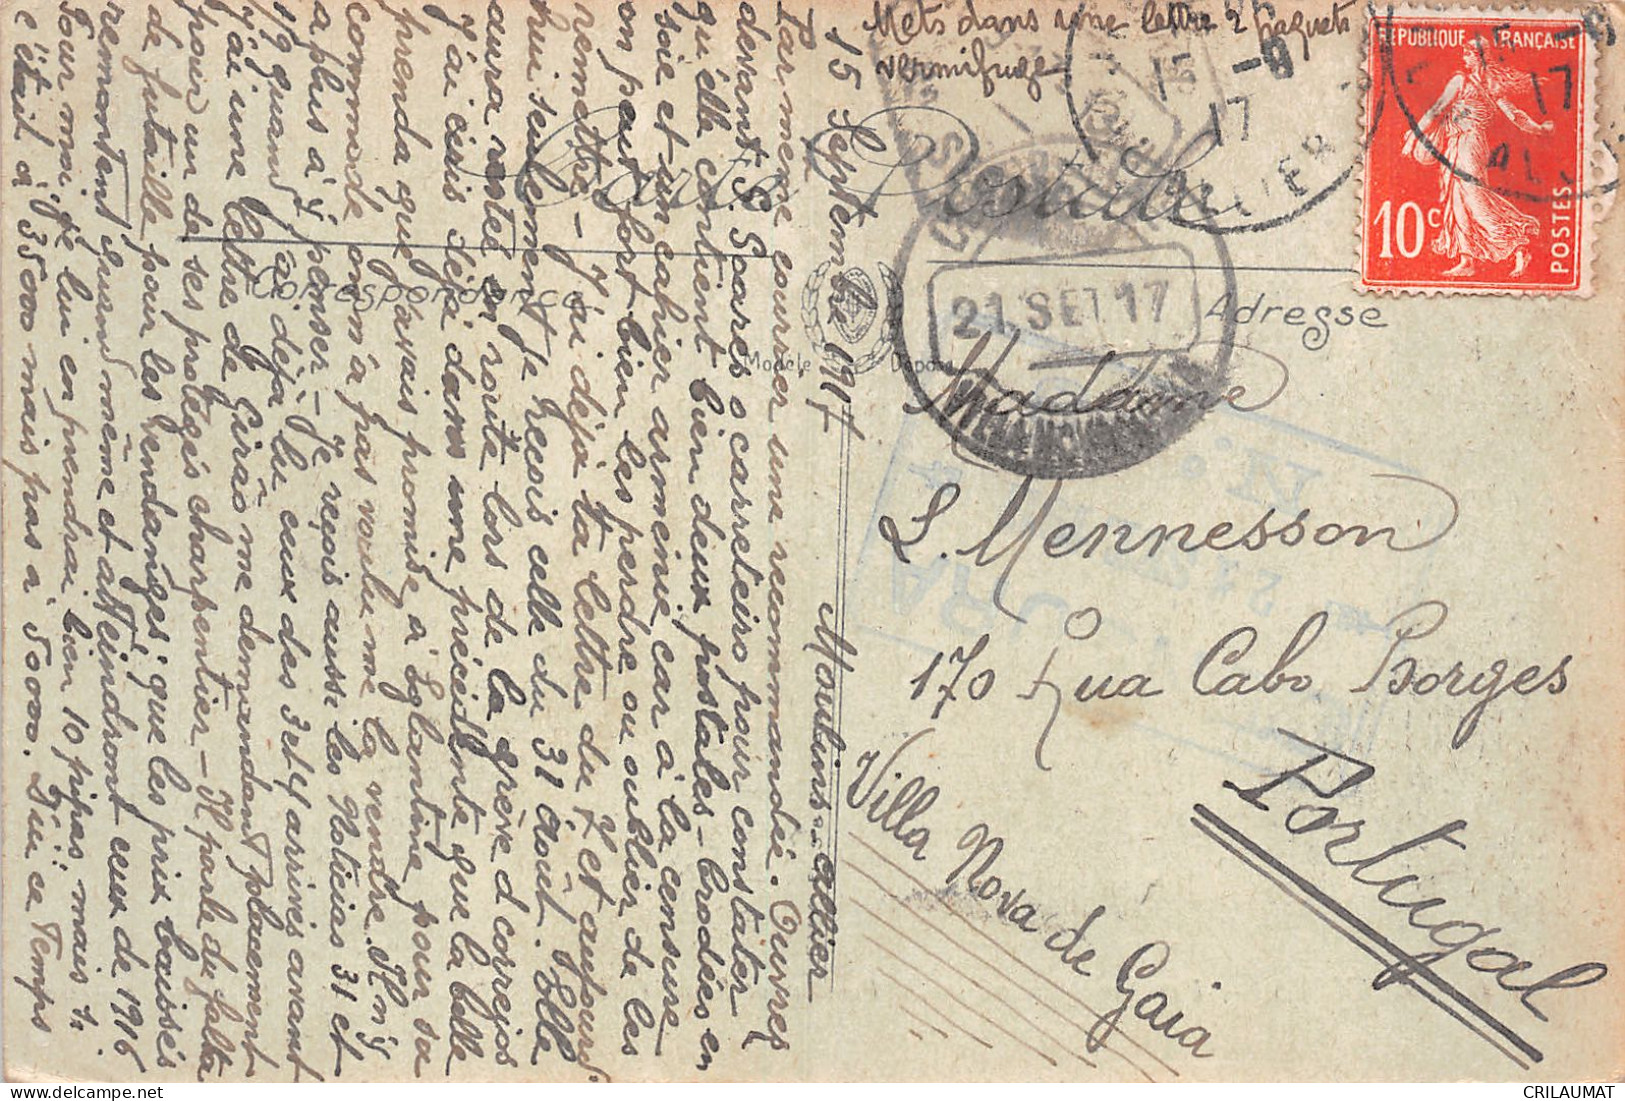 Mets dans une lettre 2 paquets
vermifuge
Carte Postale
Correspondance
Adresse
Modèle Déposé
RÉPUBLIQUE FRANÇAISE
10c
POSTES
15 -9
17
ALLIER
15 -9
17
ALLIER
21 SET 17
Madame
L. Mennesson
170 Rua Cabo Borges
Villa Nova de Gaia
Portugal
15 Septembre 1917 Moulins-Allier
Par même courrier une recommandée. Ouvres
devant S. Soares o carreteiro pour constater
qu'elle contient bien deux postales - brodées en
soie et un cahier arménie car à la censure
on peut fort bien les perdre ou oublier de les
remettre - J'ai déjà ta lettre du 7 et aujourd'
hui seulement je reçois celle du 31 Août. Elle
aura restée en route lors de la grève d correjos
J'ai écris déjà dans une précédente que la belle
prenda que j'avais promise à Eglantine pour sa
commode on m'a pas voulu me la vendre. Il n'y
a plus à y penser - Je reçois aussi les Noticias 31 et
1º quand j'ai déjà lu ceux des 3 et 4 arrivés avant
J'ai une lettre de Girão me demandant placement
pour un de ses protégés charpentier - Il parle du falta
de futaille pour les vendanges, que les prix baissés
remontent quand même et atteindront ceux de 1916
Pour moi je lui en prendrai bien 10 pipas mais si
c'était à 35000 mais pas à 50000. Dieu ce Temps
CRILAUMAT